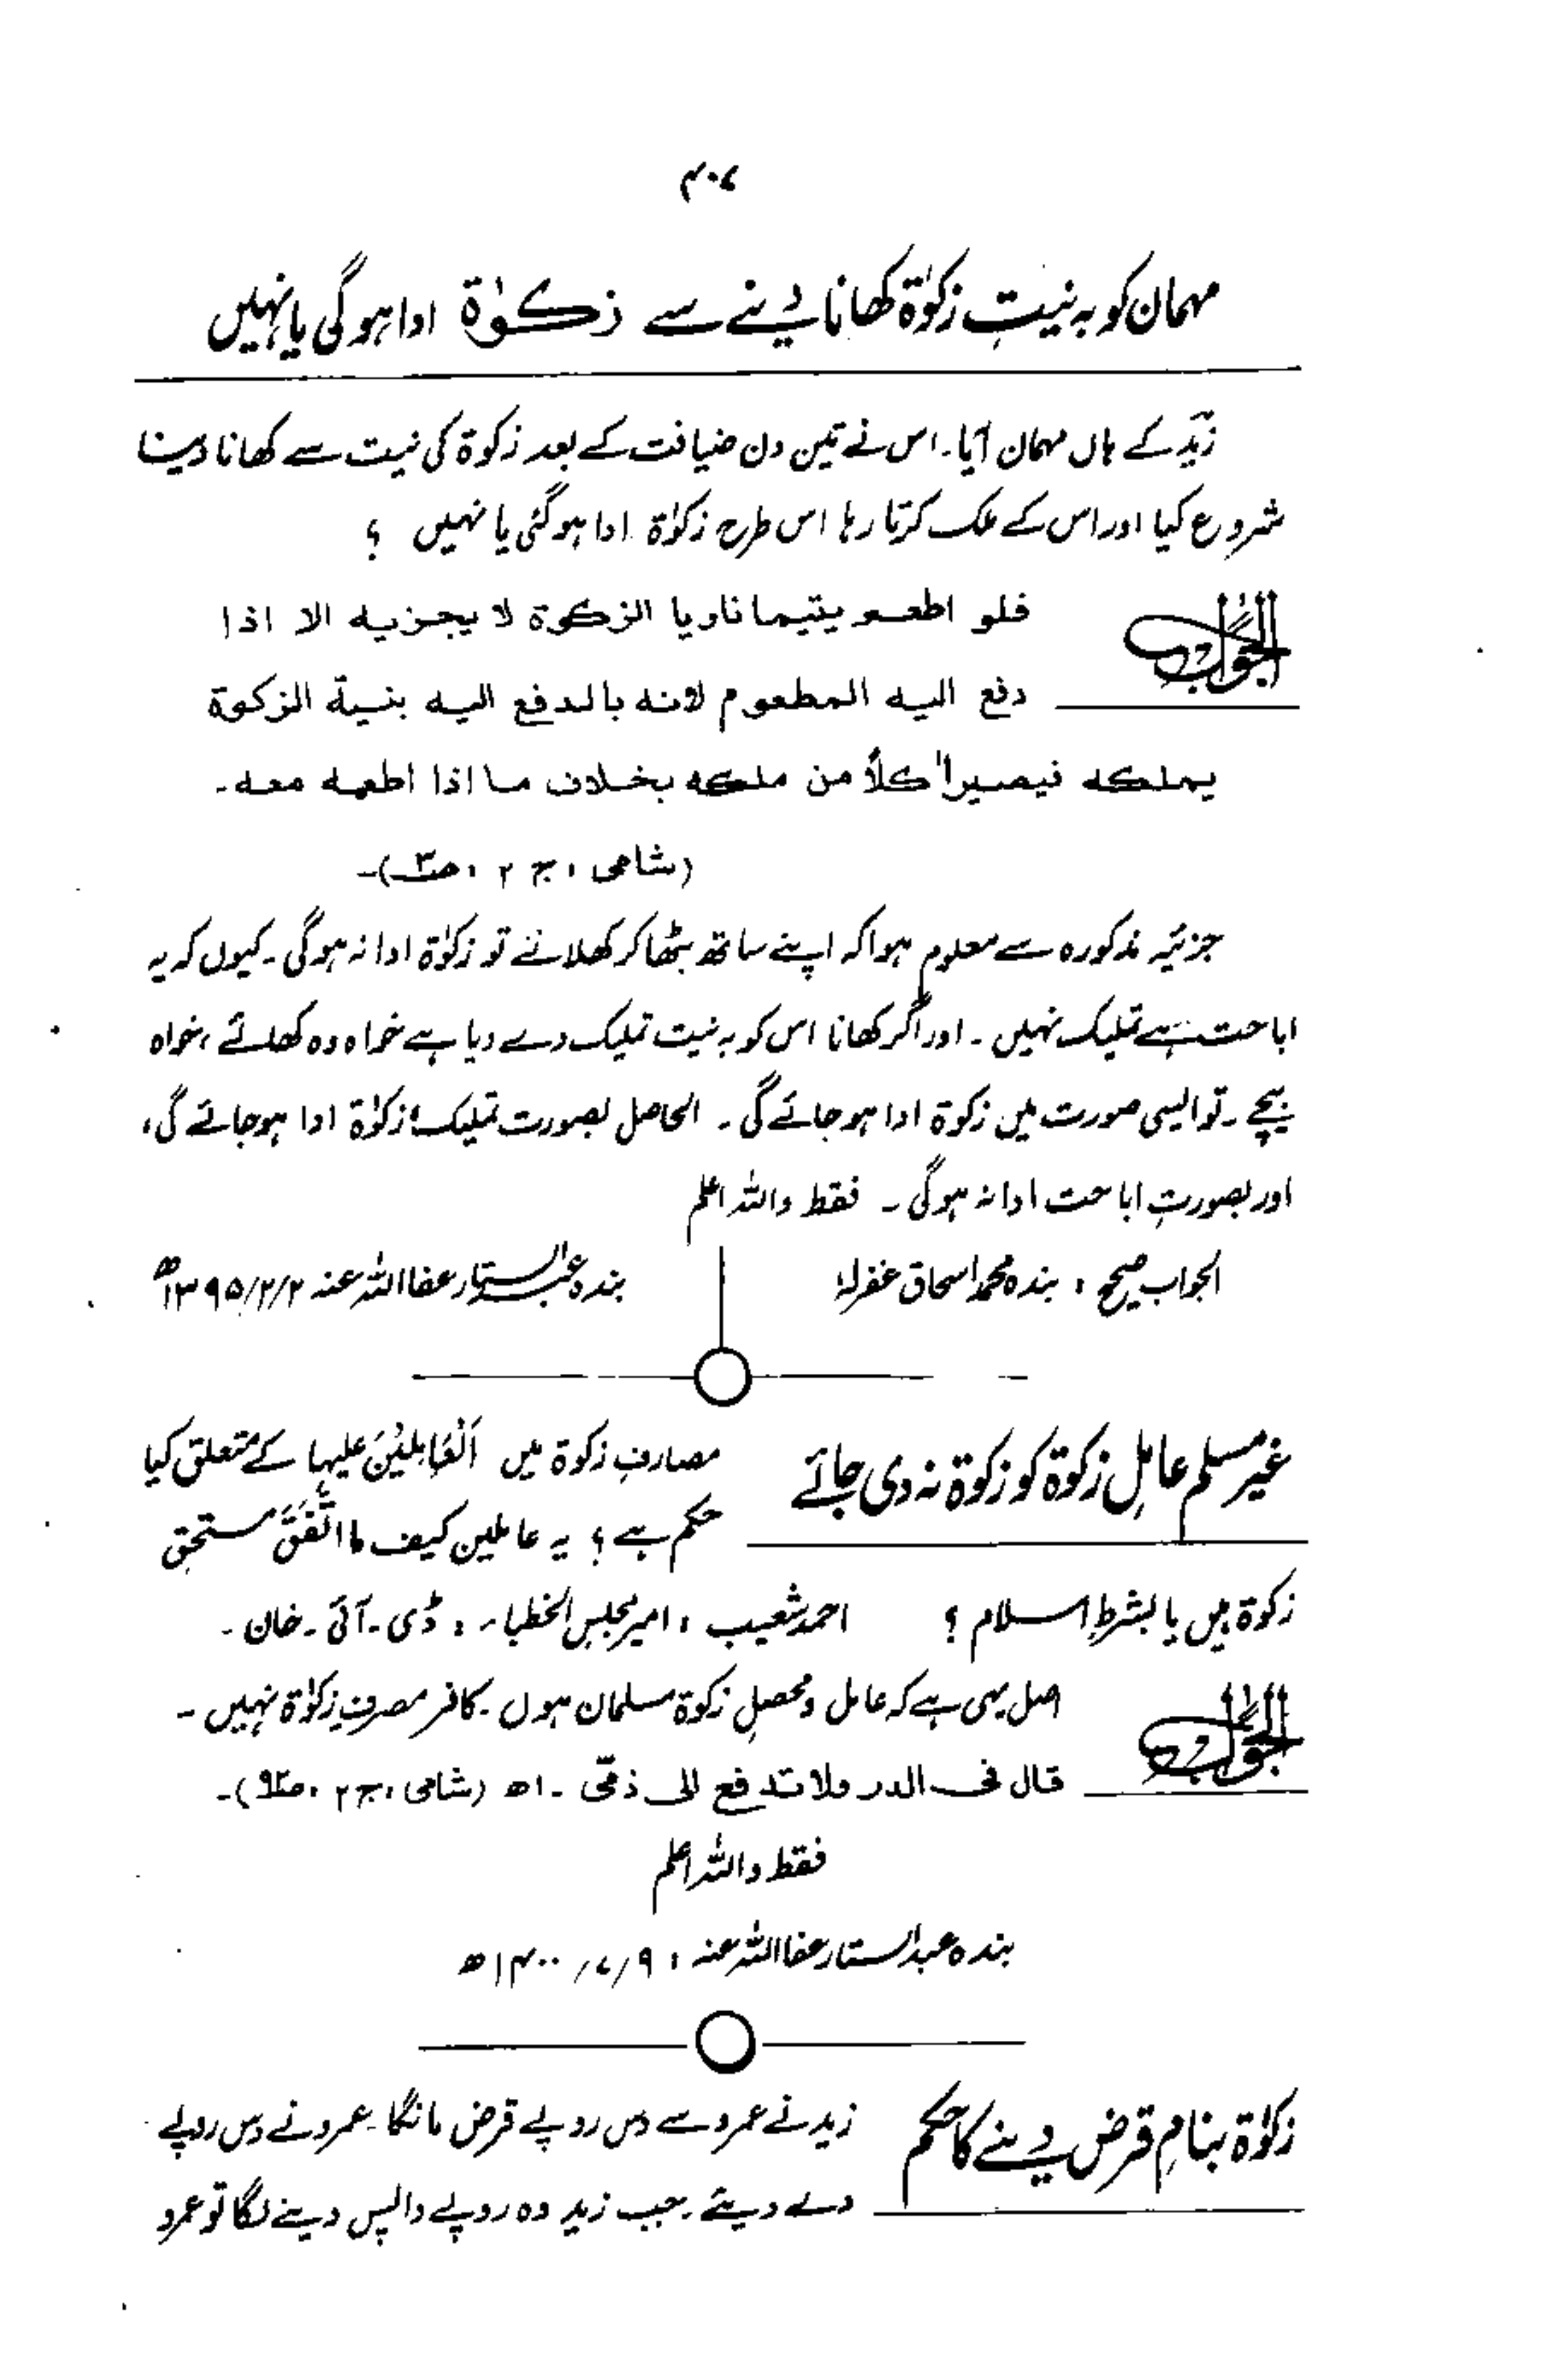 ۴۰۷
مہمان کو بہ نیتِ زکوٰۃ کھانا دینے سے زکوٰۃ ادا ہوگی یا نہیں
زید کے ہاں مہمان آیا۔ اس نے تین دن ضیافت کے بعد زکوۃ کی نیت سے کھانا دینا
شروع کیا اور اس کے ملک کرتا رہا اس طرح زکوٰۃ ادا ہوگئی یا نہیں ؟
الجواب
فلو اطعم یتیما ناویا الزکوة لا یجزیه الا اذا
دفع الیه المطعوم لانه بالدفع الیه بنیة الزکوة
یملکه فیصیر اٰکلاً من ملکه بخلاف ما اذا اطعمه معه۔
(شامی ، ج ۲ ، ص۳)۔
جزئیہ مذکورہ سے معلوم ہوا کہ اپنے ساتھ بٹھا کر کھلائے تو زکوٰۃ ادا نہ ہوگی۔ کیوں کہ یہ
اباحت ہے تملیک نہیں۔ اور اگر کھانا اس کو بہ نیت تملیک دے دیا ہے خواہ وہ کھائے ، خواہ
بیچے۔ تو ایسی صورت میں زکوۃ ادا ہو جائے گی۔ الحاصل بصورت تملیک زکوٰۃ ادا ہو جائے گی،
اور بصورتِ اباحت ادا نہ ہوگی۔ فقط واللہ اعلم
الجواب صحیح ، بندہ محمد اسحاق غفرلہٗ
بندہ عبدالستار عفا اللہ عنہ ۲/۲/۱۳۹۵ھ
غیر مسلم عاملِ زکوۃ کو زکوۃ نہ دی جائے
مصارفِ زکوۃ میں اَلْعَامِلِیْنَ علیہا کے متعلق کیا
حکم ہے ؟ یہ عاملین کیف ما اتَّفَقَ مستحق
زکوۃ ہیں یا بشرطِ اسلام ؟ احمد شعیب ، امیر مجلس الخطباء ، ڈی۔ آئی۔ خان۔
الجواب
اصل یہی ہے کہ عامل و محصلِ زکوۃ مسلمان ہوں۔ کافر مصرفِ زکوٰۃ نہیں۔
قال فی الدر ولا تدفع الی ذمی ۔ اھ (شامی ، ج ۲ ، ص۹۲)۔
فقط واللہ اعلم
بندہ عبدالستار عفا اللہ عنہ ، ۹/۷/۱۴۰۰ھ
زکوٰۃ بنامِ قرض دینے کا حکم
زید نے عمرو سے دس روپے قرض مانگا۔ عمرو نے دس روپے
دے دیئے۔ جب زید وہ روپے واپس دینے لگا تو عمرو